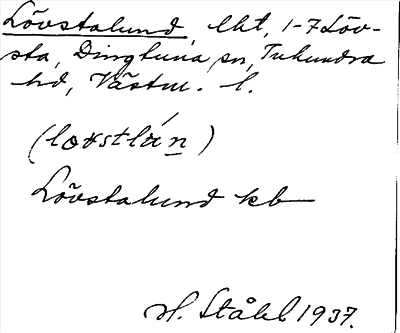 Lövstalund, lht, 1-7 Löv-
sta, Dingtuna sn, Tuhundra
hd, Västm. l.
(lovstlún)
Lövstalund kb
H. Ståhl 1937.